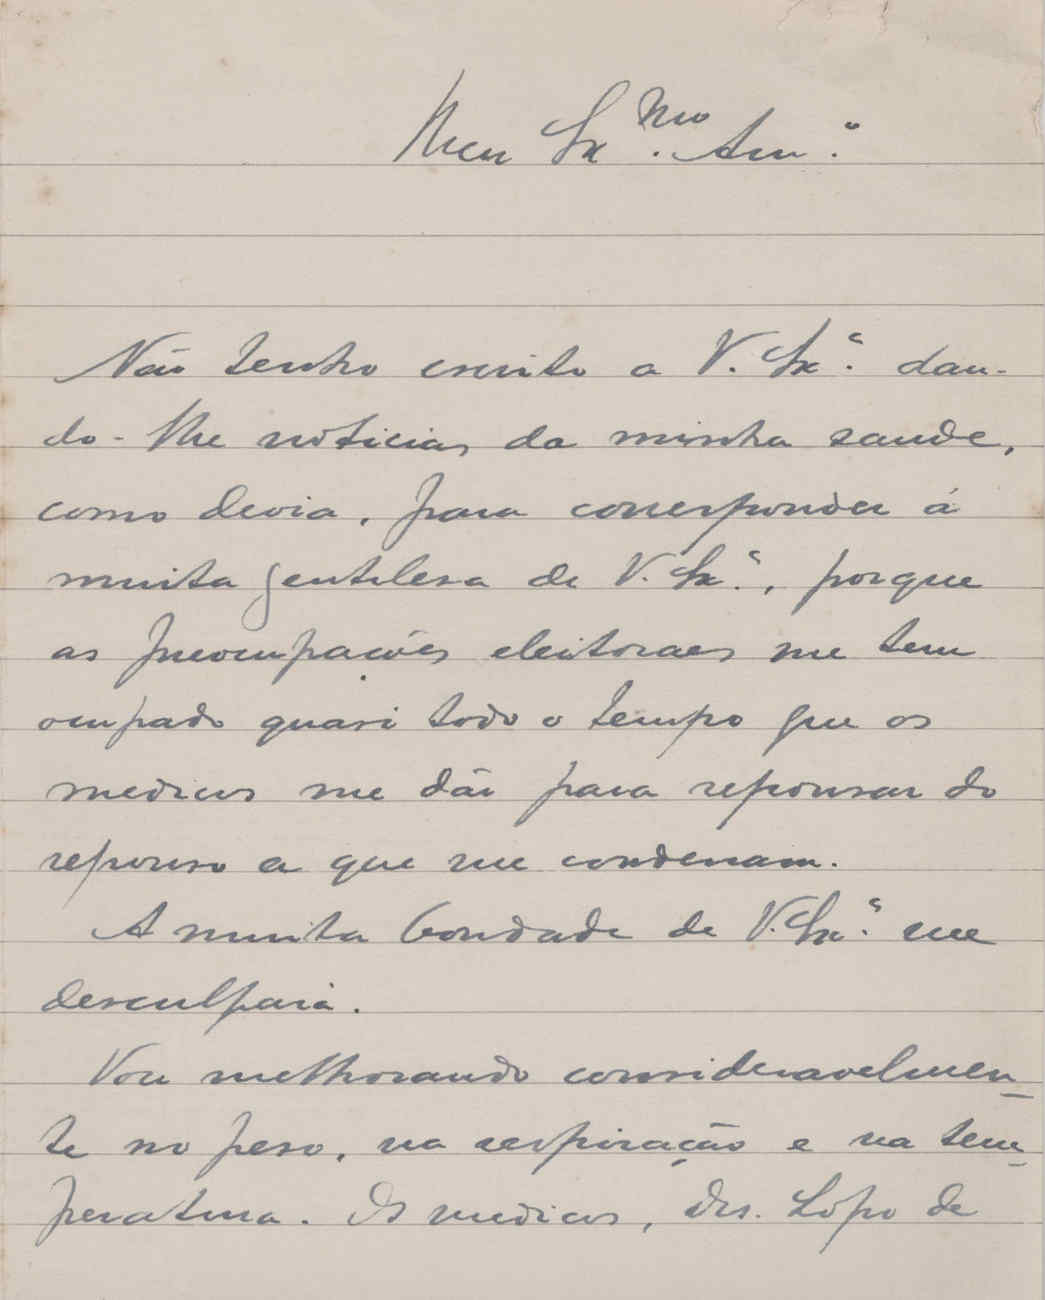 Meu Ex.mo Am.º
Não tenho escrito a V. Ex.ª dan-
do-lhe noticias da minha saude,
como devia, para corresponder á
muita gentilesa de V. Ex.ª, porque
as preocupações eleitoraes me tem
ocupado quasi todo o tempo que os
medicos me dão para repousar do
repouso a que me condenam.
A muita bondade de V. Ex.ª me
desculpará.
Vou melhorando consideravelmen-
te no peso, na respiração e na tem-
peratura. Os medicos, drs. Lopo de